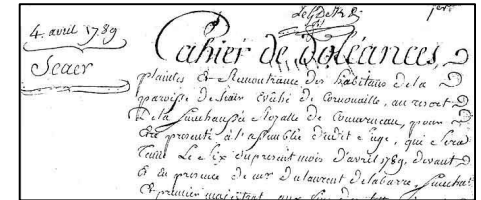 1er
4. avril 1789
Scaer
Cahier de doléances,
plaintes et Remontrance des habitans de la
paroisse de Scair évêché de Cornouaille, au ressort
De la Senechaussée Royalle de Concarneau, pour
etre presenté à l'assemblée dudit siege, qui sera
tenue Le Six du present mois d'avril 1789. devant
et en presence de mr dulaurent delabarre, Senechal
Et premier magistrat aux